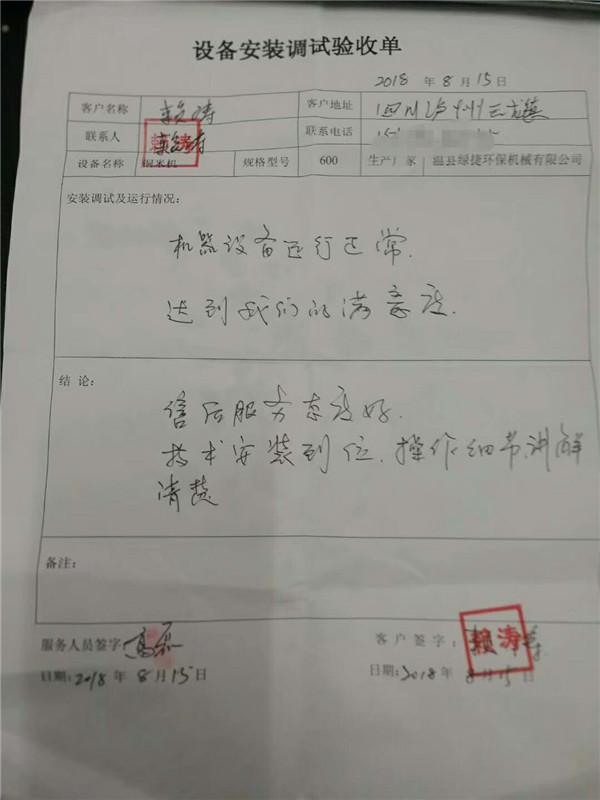 设备安装调试验收单
2018 年 8 月 15 日
客户名称 赖涛 客户地址 四川泸州云龙镇
联系人 赖涛 联系电话
设备名称 铜米机 规格型号 600 生产厂家 温县绿捷环保机械有限公司
安装调试及运行情况:
机器设备运行正常.
达到我们的满意度.
结 论:
售后服务态度好.
技术安装到位.操作细节讲解
清楚
备注:
服务人员签字 高磊 客 户 签 字: 赖涛
日期:2018 年 8 月 15 日 日期:2018 年 8 月 15 日